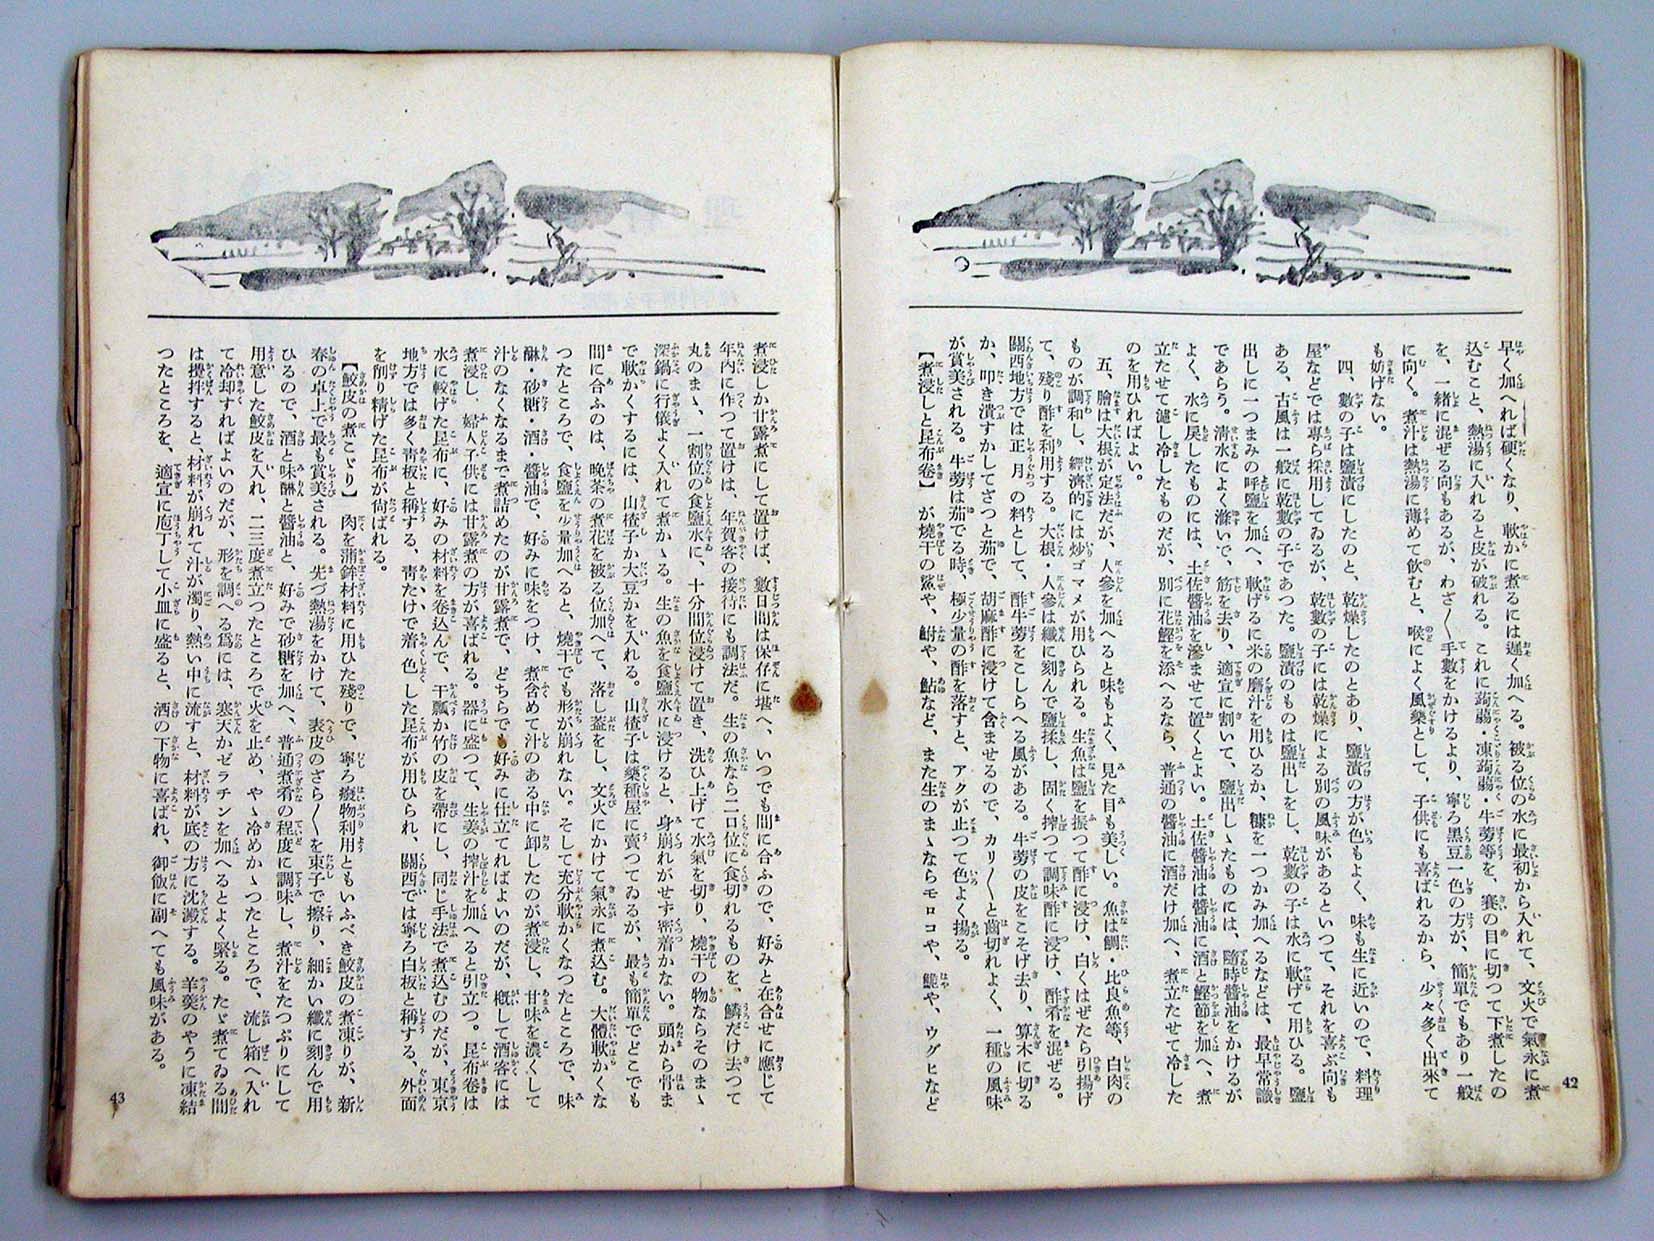 早く加へれば硬くなり、軟かに煮るには遅く加へる。被る位の水に最初から入れて、文火で氣永に煮
込むこと、熱湯に入れると皮が破れる。これに蒟蒻・凍蒟蒻・牛蒡等を、賽の目に切つて下煮したの
を、一緒に混ぜる向もあるが、わざ〱手數をかけるより、寧ろ黒豆一色の方が、簡單でもあり一般
に向く。煮汁は熱湯に薄めて飲むと、喉によく風藥として、子供にも喜ばれるから、少々多く出來て
も妨げない。
四、數の子は鹽漬にしたのと、乾燥したのとあり、鹽漬の方が色もよく、味も生に近いので、料理
屋などでは專ら採用してゐるが、乾數の子には乾燥による別の風味があるといつて、それを喜ぶ向も
ある、古風は一般に乾數の子であつた。鹽漬のものは鹽出しをし、乾數の子は水に軟げて用ひる。鹽
出しに一つまみの呼鹽を加へ、軟げるに米の磨汁を用ひるか、糠を一つかみ加へるなどは、最早常識
であらう。清水によく滌いで、筋を去り、適宜に割いて、鹽出しゝたものには、隨時醤油をかけるが
よく、水に戻したものには、土佐醤油を滲ませて置くとよい。土佐醤油は醤油に酒と鰹節を加へ、煮
立たせて濾し冷したものだが、別に花鰹を添へるなら、普通の醤油に酒だけ加へ、煮立たせて冷した
のを用ひればよい。
五、膾は大根が定法だが、人參を加へると味もよく、見た目も美しい。魚は鯛・比良魚等、白肉の
ものが調和し、經濟的には炒ゴマメが用ひられる。生魚は鹽を振つて酢に浸け、白くはぜたら引揚げ
て、殘り酢を利用する。大根・人參は纖に刻んで鹽揉し、固く搾つて調味酢に浸け、酢肴を混ぜる。
關西地方では正月の料として、酢牛蒡をこしらへる風がある。牛蒡の皮をこそげ去り、算木に切る
か、叩き潰すかしてざつと茹で、胡麻酢に浸けて含ませるので、カリ〱と齒切れよく、一種の風味
が賞美される。牛蒡は茹でる時、極少量の酢を落すと、アクが止つて色よく揚る。
【煮浸しと昆布卷】が燒干の鯊や、鮒や、鮎など、また生のまゝならモロコや、鮠や、ウグヒなど
42
煮浸しか甘露煮にして置けば、數日間は保存に堪へ、いつでも間に合ふので、好みと在合せに應じて
年內に作つて置けは、年賀客の接待にも調法だ。生の魚なら二口位に食切れるものを、鱗だけ去つて
丸のまゝ、一割位の食鹽水に、十分間位浸けて置き、洗ひ上げて水氣を切り、燒干の物ならそのまゝ
深鍋に行儀よく入れて煮かゝる。生の魚を食鹽水に浸けると、身崩れがせず密着かない。頭から骨ま
で軟かくするには、山楂子か大豆かを入れる。山楂子は藥種屋に賣つてゐるが、最も簡單でどこでも
間に合ふのは、晩茶の煮花を被る位加へて、落し蓋をし、文火にかけて氣永に煮込む。大體軟かくな
つたところで、食鹽を少量加へると、燒干でも形が崩れない。そして充分軟かくなつたところで、味
醂・砂糖・酒・醤油で、好みに味をつけ、煮含めて汁のある中に卸したのが煮浸し、甘味を濃くして
汁のなくなるまで煮詰めたのが甘露煮で、どちらでも好みに仕立てればよいのだが、槪して酒客には
煮浸し、婦人子供には甘露煮の方が喜ばれる。器に盛つて、生姜の搾汁を加へると引立つ。昆布卷は
水に軟げた昆布に、好みの材料を卷込んで、干瓢か竹の皮を帶にし、同じ手法で煮込むのだが、東京
地方では多く靑板と稱する、靑たけで着色した昆布が用ひられ、關西では寧ろ白板と稱する、外面
を削り精げた昆布が尙ばれる。
【鮫皮の煮こゞり】肉を蒲鉾材料に用ひた殘りで、寧ろ癈物利用ともいふべき鮫皮の煮凍りが、新
春の卓上で最も賞美される。先づ熱湯をかけて、表皮のざら〱を束子で擦り、細かい纖に刻んで用
ひるので、酒と味醂と醤油と、好みで砂糖を加へ、普通煮肴の程度に調味し、煮汁をたつぷりにして
用意した鮫皮を入れ、二三度煮立つたところで火を止め、やゝ冷めかゝつたところで、流し箱へ入れ
て冷却すればよいのだが、形を調へる爲には、寒天かゼラチンを加へるとよく緊る。たゞ煮てゐる間
は攪拌すると、材料が崩れて汁が濁り、熱い中に流すと、材料が底の方に沈澱する。羊羹のやうに凍結
つたところを、適宜に庖丁して小皿に盛ると、酒の下物に喜ばれ、御飯に副へても風味がある。
43